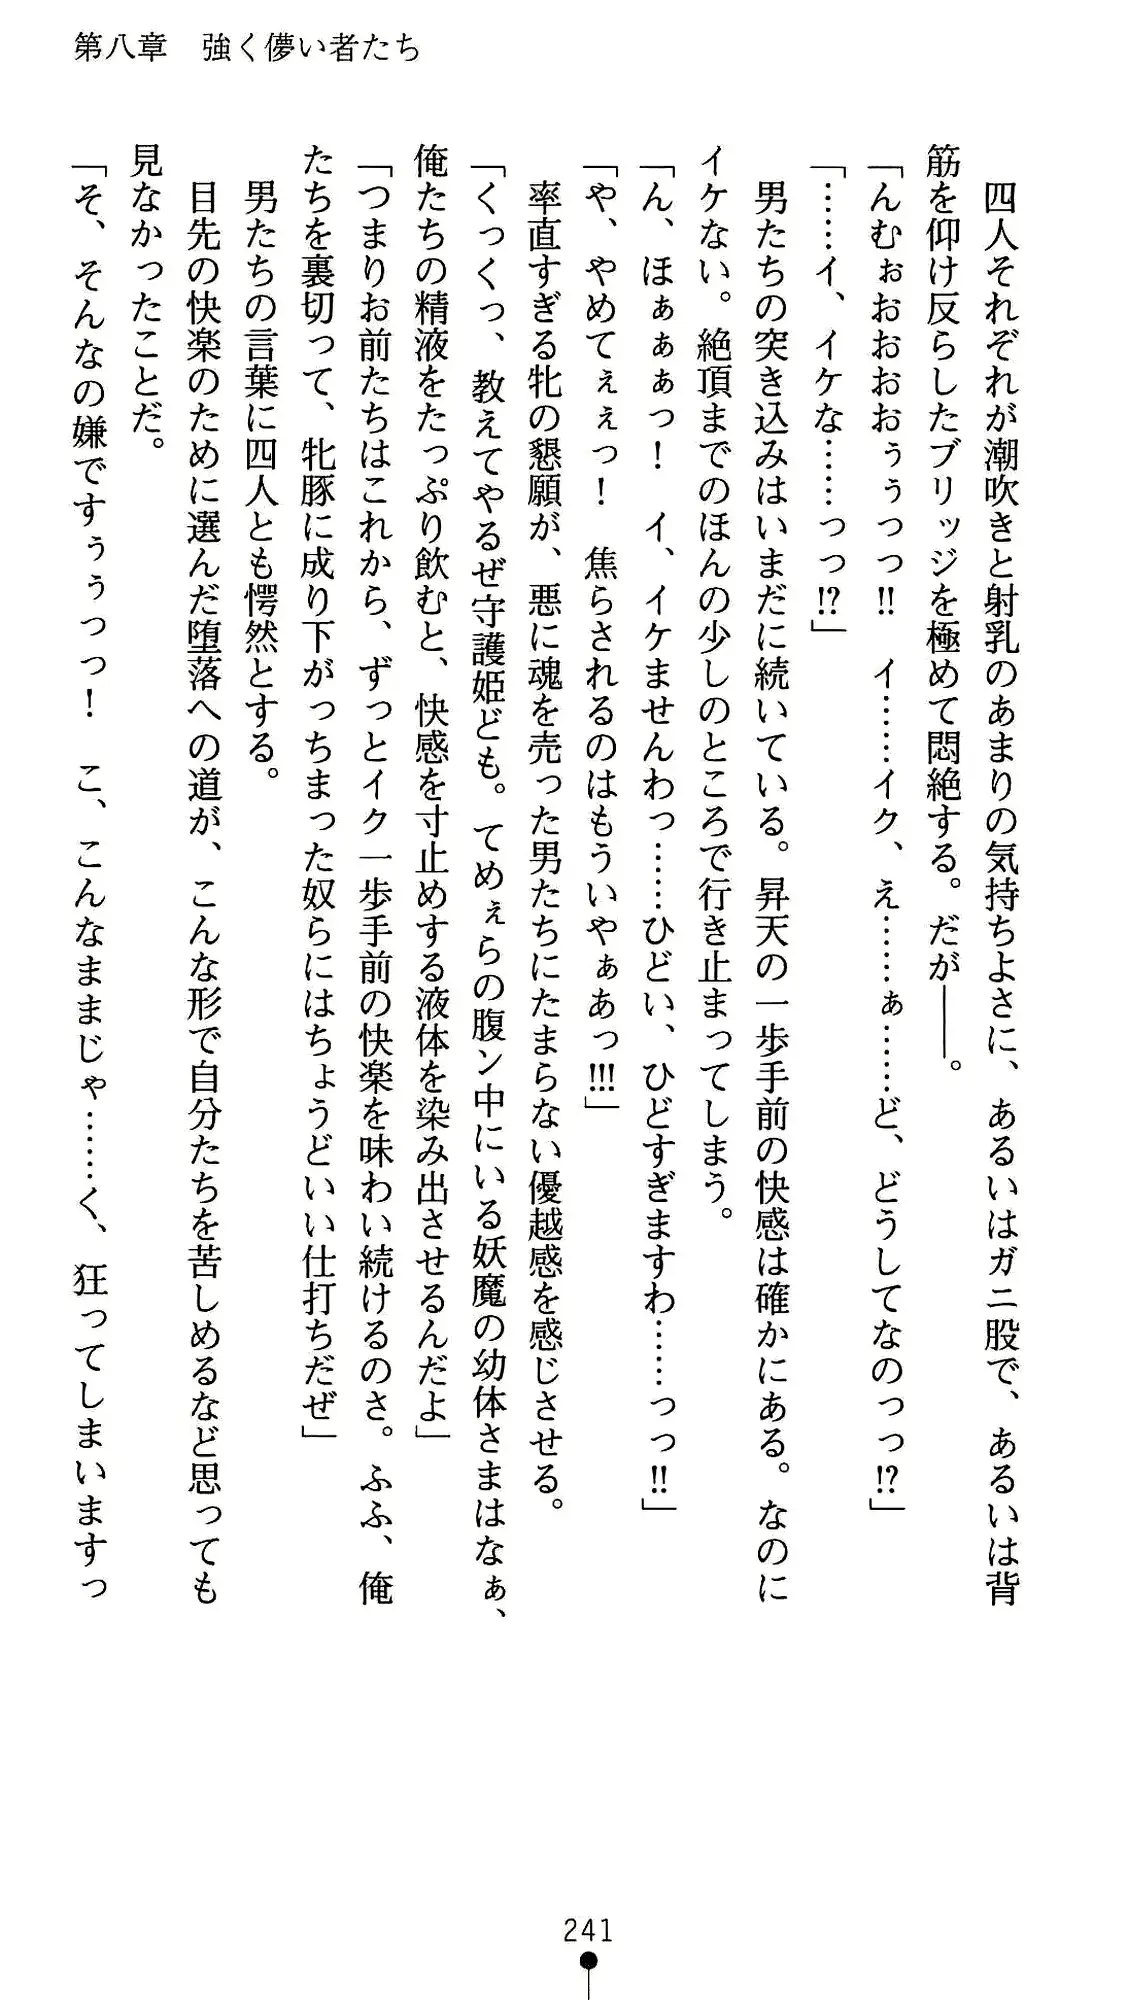 第八章　強く儚い者たち
　四人それぞれが潮吹きと射乳のあまりの気持ちよさに、あるいはガニ股で、あるいは背
筋を仰け反らしたブリッジを極めて悶絶する。だが――。
「んむぉおおおおぅぅっっ!!　イ……イク、え……ぁ……ど、どうしてなのっっ!?」
「……イ、イケな……っっ!?」
　男たちの突き込みはいまだに続いている。昇天の一歩手前の快感は確かにある。なのに
イケない。絶頂までのほんの少しのところで行き止まってしまう。
「ん、ほぁぁぁっ！　イ、イケませんわっ……ひどい、ひどすぎますわ……っっ!!」
「や、やめてぇぇっ！　焦らされるのはもういやぁあっ!!!」
　率直すぎる牝の懇願が、悪に魂を売った男たちにたまらない優越感を感じさせる。
「くっくっ、教えてやるぜ守護姫ども。てめぇらの腹ン中にいる妖魔の幼体さまはなぁ、
俺たちの精液をたっぷり飲むと、快感を寸止めする液体を染み出させるんだよ」
「つまりお前たちはこれから、ずっとイク一歩手前の快楽を味わい続けるのさ。ふふ、俺
たちを裏切って、牝豚に成り下がっちまった奴らにはちょうどいい仕打ちだぜ」
　男たちの言葉に四人とも愕然とする。
　目先の快楽のために選んだ堕落への道が、こんな形で自分たちを苦しめるなど思っても
見なかったことだ。
「そ、そんなの嫌ですぅぅっっ！　こ、こんなままじゃ……く、狂ってしまいますっ
241